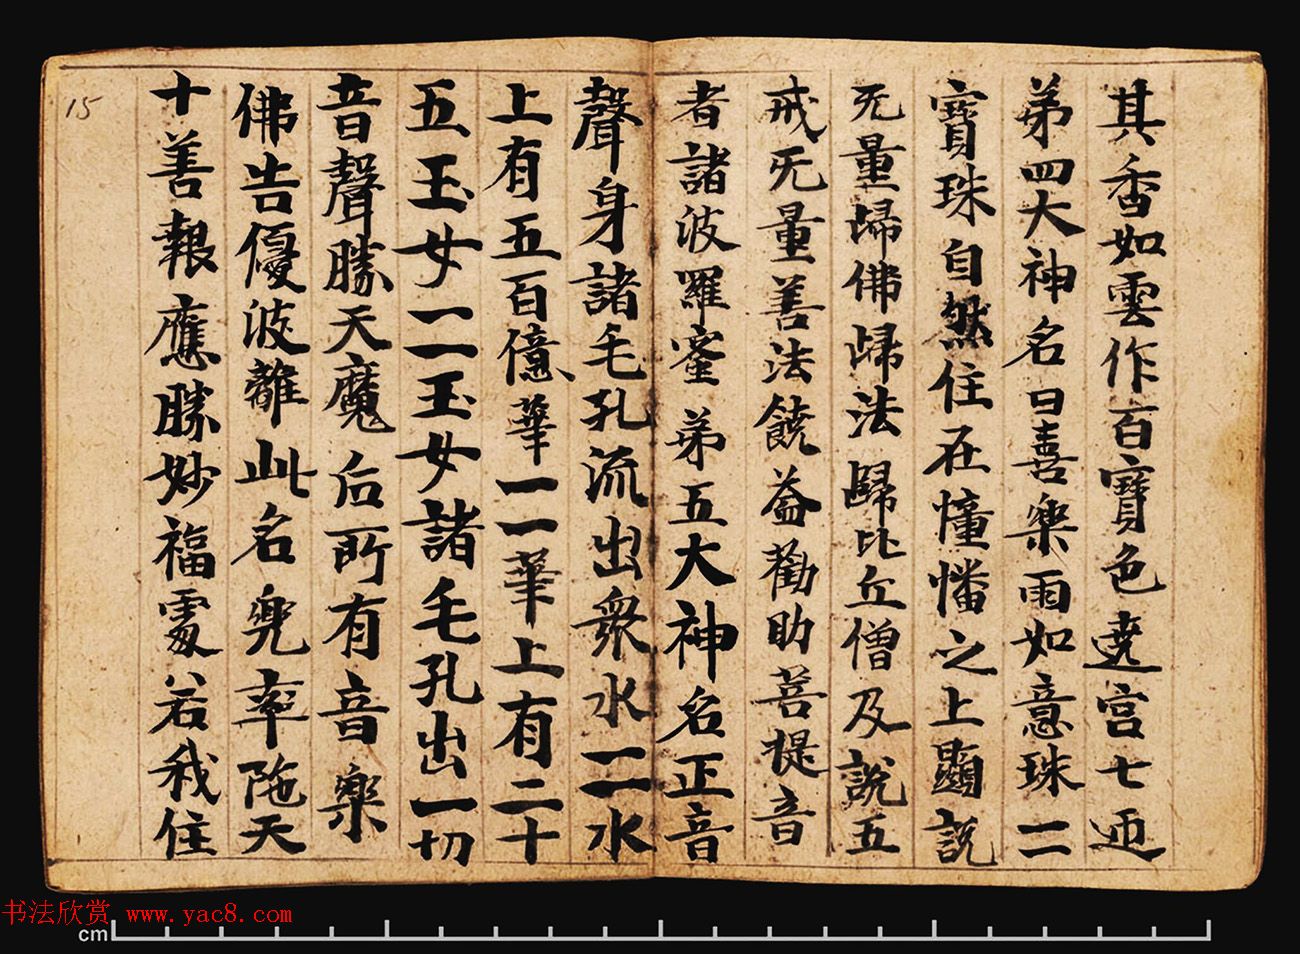 其香如雲作百寶色遶宮七迊
弟四大神名曰喜樂雨如意珠一一
寶珠自然住在憧憣之上顯說
无量歸佛歸法歸比丘僧及說五
戒无量善法饒益勸助菩提音
者諸波羅蜜弟五大神名正音
聲身諸毛孔流出衆水一一水
上有五百億華一一華上有二十
五玉女一一玉女諸毛孔出一切
音聲勝天魔后所有音樂
佛告優波離此名兜率陁天
十善報應勝妙福處若我住
15
书法欣赏 www.yac8.com
cm